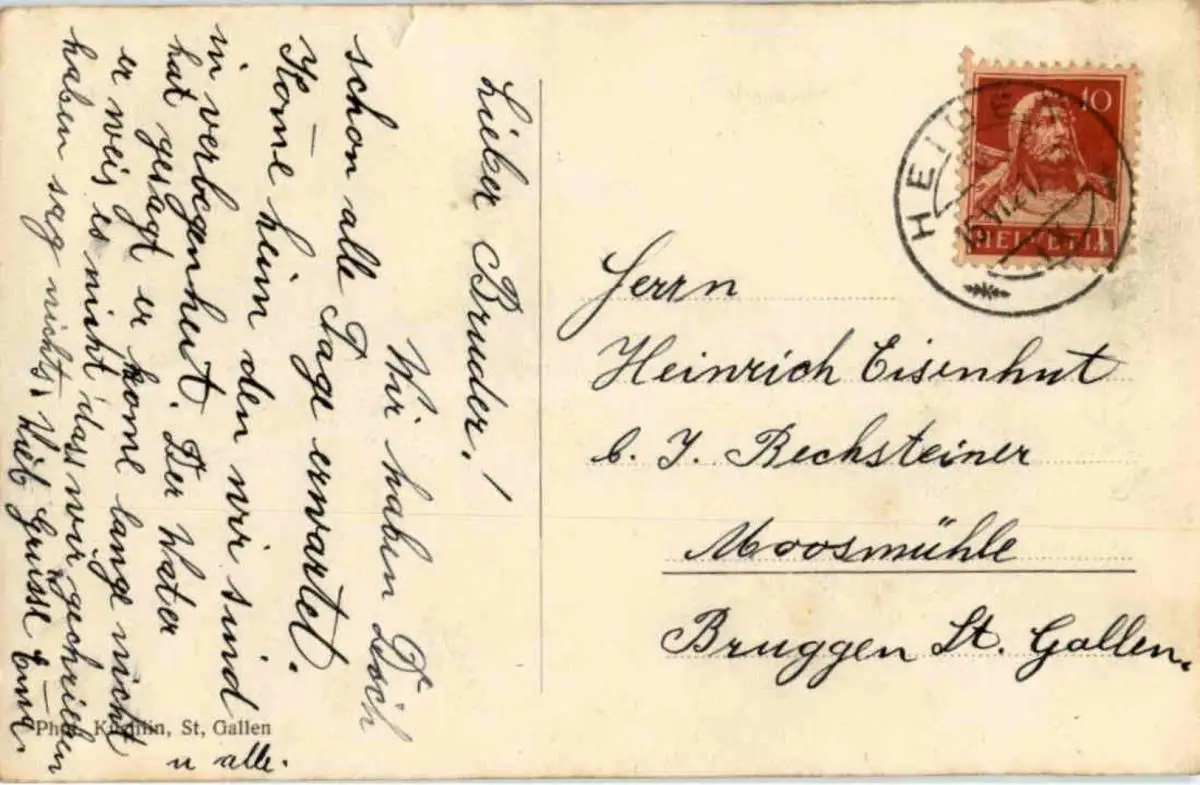 Lieber Bruder!
Wir haben Dich
schon alle Tage erwartet.
Kom̄e heim den wir sind
in verbegenheit. Der Vater
hat gesagt er kome lange nicht
er weis es nicht dass wir geschrieben
haben sag nichts. Viel Grüsse Em̄a.
u alle.
Phot. St, Gallen
HEIDEN
10
HELVETIA
Herrn
Heinrich Eisenhut
b. J. Bechsteiner
Moosmühle
Bruggen St. Gallen.